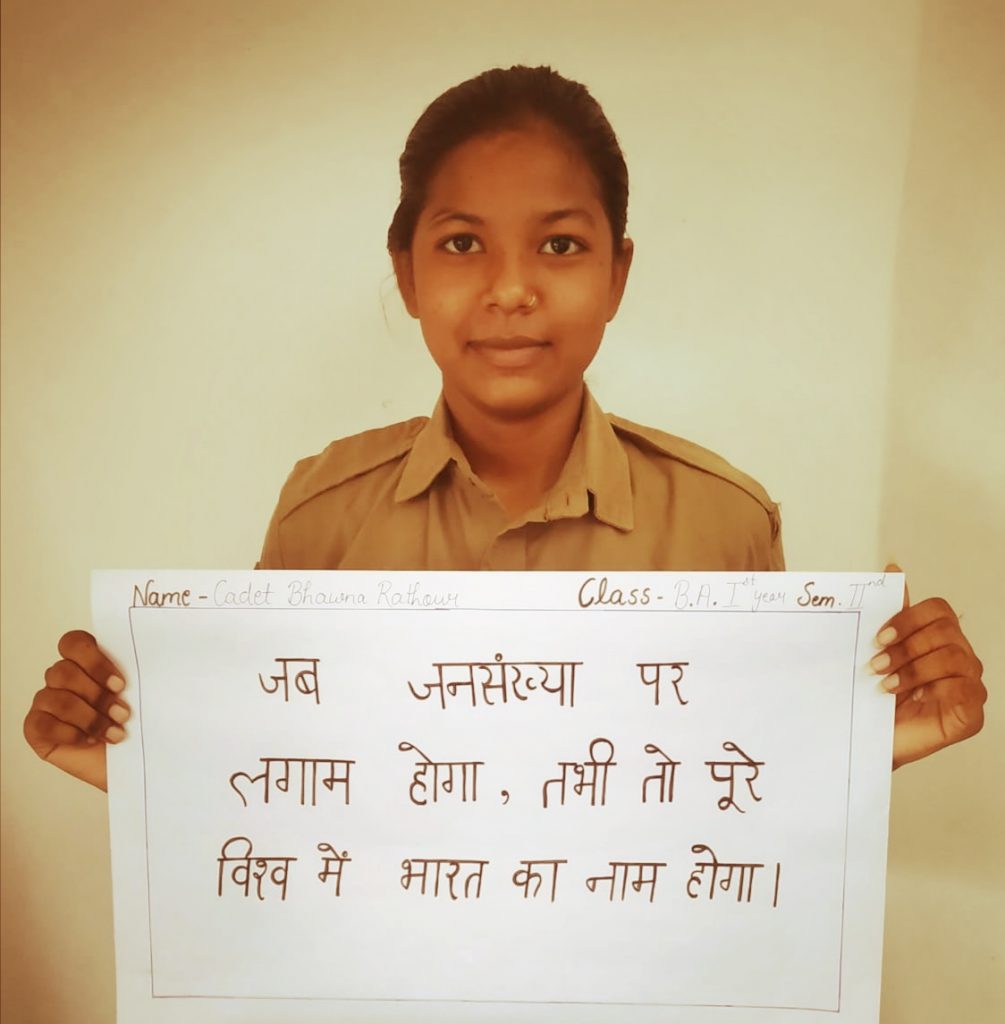 Name - Cadet Bhawna Rathour Class - B.A. Ist year Sem. IInd
जब जनसंख्या पर
लगाम होगा, तभी तो पूरे
विश्व में भारत का नाम होगा।